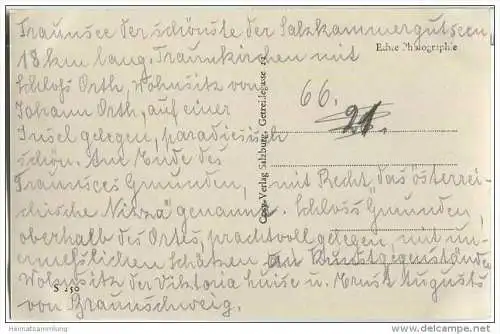 Traunsee der schönste der Salzkammergutseen
18 km lang. Traunkirchen mit
Echte Photographie
Schloss Orth, Wohnsitz von
Johann Orth, auf einer
66.
21.
Insel gelegen, paradiesisch
schön. Am Ende des
Traunsees Gmunden, mit Recht "das österrei-
chische Nizza" genannt. Schloss Gmunden,
oberhalb des Ortes, prachtvoll gelegen, mit un-
ermesslichen Schätzen an Kunstgegenständen
Wohnsitz der Viktoria Luise u. Ernst Augusts
von Braunschweig.
S 150
Cosy-Verlag Salzburg, Getreidegasse 22
Heimatsammlung.de
www.heimatsammlung.de